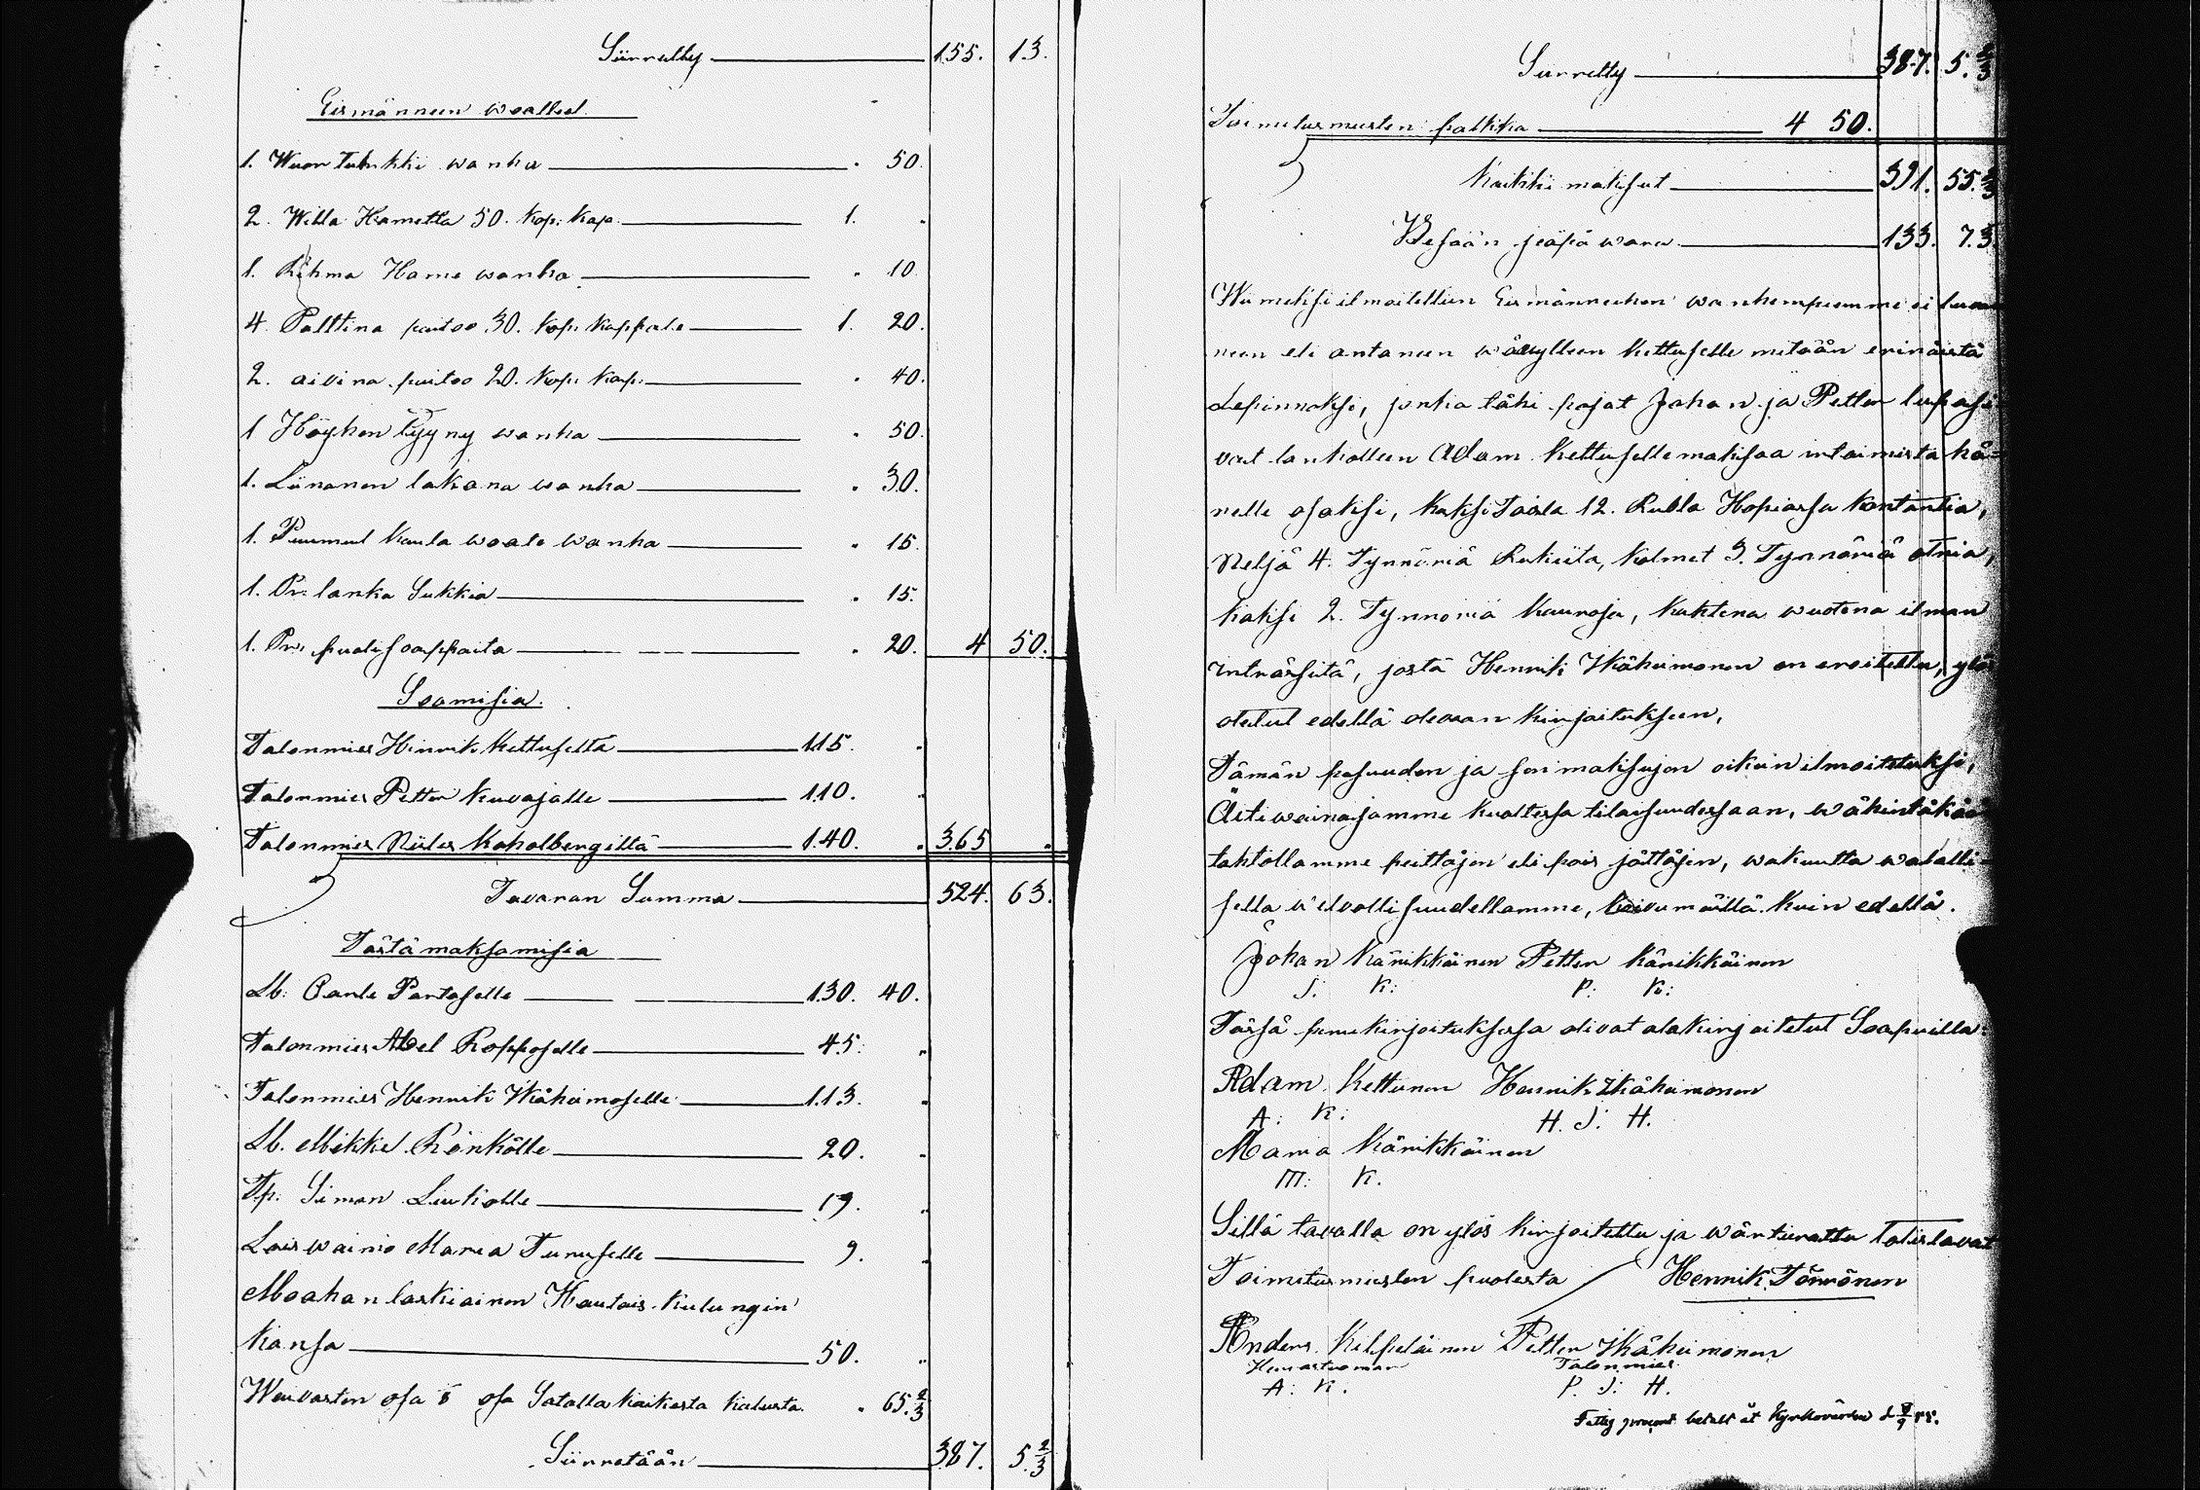 Siirretty 155. 13.
Eismänneen waatteet
1. wanha . 50.
2. Willa Hametta 50. kop. kap. 1. .
1. Hame wanha . 10.
4. Palttina paitoo 30. kop. kappale 1. 20.
2. aivina paitoo 20. kop. kap. . 40.
1 Höyhen tyyny wanha . 50.
1. Liinanen lakana wanha . 30.
1. Puumul kaula waate wanha . 15.
1. Pr. lanka Sukkia . 15.
1. Pr. puolisaappaita . 20. 4 50.
Saamisia.
Talonmies Hinrik Kettuselta 115. .
Talonmies Petter Kuvajalle 110. .
Talonmies Niiles Kaholbengiltä 140. . 365 .
Tavaran Summa 524. 63.
Tästä maksamisia
Lb: Paule Partaselle 130. 40.
Talonmies Abel Ropposelle 45. „
Talonmies Henrik Ikäheimoselle 113. „
Lb. Mikkel Rönkölle 20. „
Tp: Simon Liukolle 19. „
Loiswaimo Maria Turuselle 9. „
Maahan laskiainen Hautais-kulungin
kansa 50. „
Waivasten osa ⅛ osa Satalta kaikesta kalusta . 65.⅔
Siirretään 387. 5.⅔
Siirretty 387. 5.⅔
Toimitusmiesten palkka 4 50.
Kaikki maksut 391. 55.⅔
Pesään jääpä wara 133. 7.⅓
Wiimeksi ilmoitettiin Eismänneehen wanhempiemme ei
neen eli antaneen wävylleen Kettuselle mitään erinäistä
Lepinnoksi, jonka tähi pojat Johan ja Petter lupasi-
vat lankolleen Adam Kettuselle maksaa intaimista hä-
nelle osaksi, kaksi Toista 12. Rubla Hopiassa kontantia,
Neljä 4. Tynnöriä Rukiita, kolmet 3. Tynnöriä otria,
kaksi 2. Tynnöriä kauroja, kahtena wuotena ilman
inträssitä, josta Henrik Ikäheimonen on eroitettu, ylös
otetut edellä olevaan kirjoitukseen,
Tämän pesuuden ja sen maksujen oikiin ilmoitetuksi,
Äiti wainajamme kuoltessa tilaisuudessaan, wähintäkää
tahtollamme peittäjen eli pois jättäjen, wakuutta walalli-
sella welvollisuudellamme, Paivu määllä kuin edellä.
Johan Känikkäinen Petter Känikkäinen
J: K: P: K:
Tässä perukirjoituksessa olivat alakirjoitetut Saapuilla:
Adam Kettunen Henrik Ikäheimonen
A: K: H. J: H.
Maria Känikkäinen
M: K.
Sillä tavalla on ylös kirjoitettu ja wärtierattu totistavat
Toimitusmiesten puolesta Henrik Törrönen
Anders Kilpeläinen Petter Ikäheimonen
Talonmies
A: K. P. J: H.
Fattig procent betalt åt Kyrkovärden d